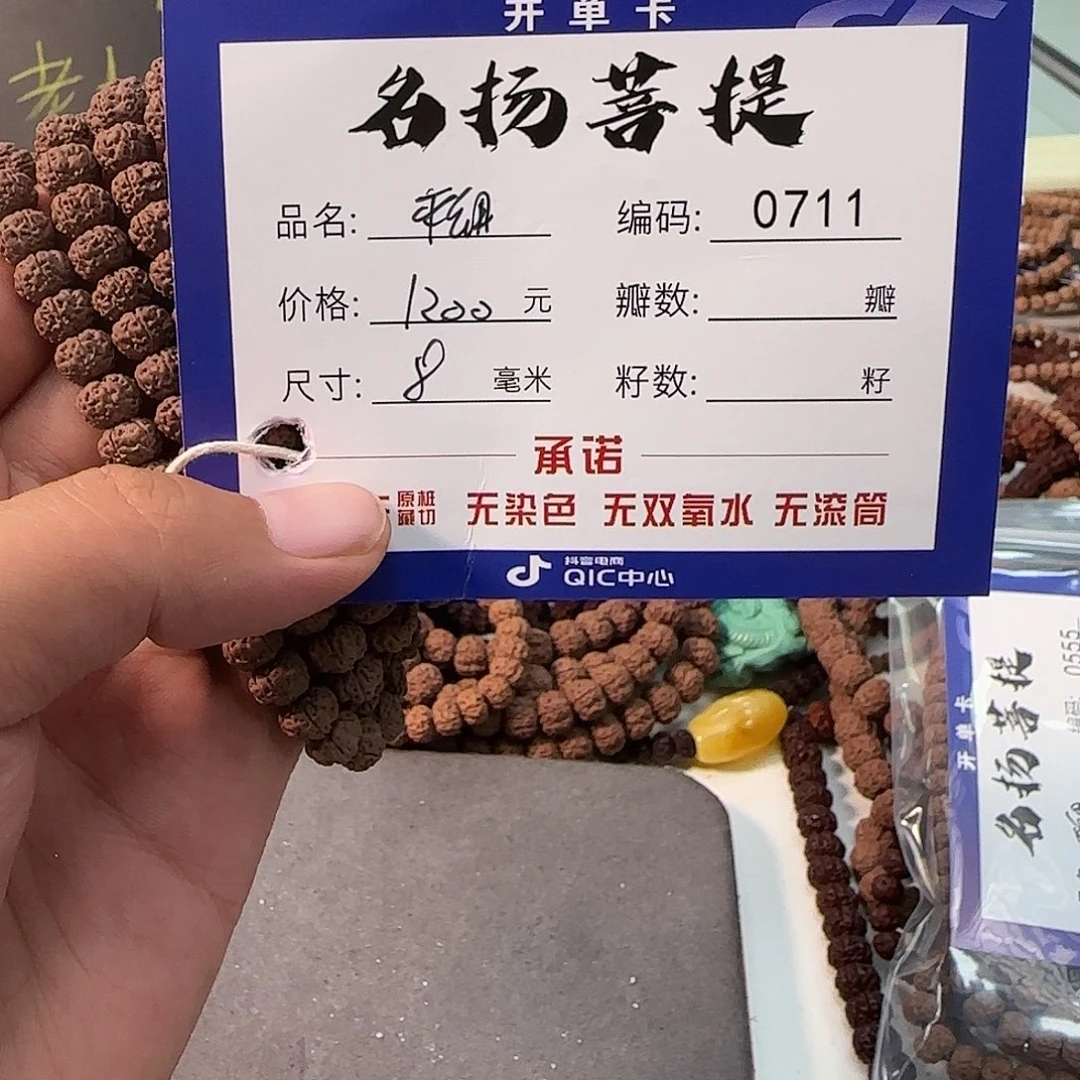 开单卡
名扬菩提
品名:
编码: 0711
价格: 1200 元
瓣数: 瓣
尺寸: 8 毫米
籽数: 籽
承诺
原桩
藏切
无染色 无双氧水 无滚筒
抖音电商
QIC中心
老
开单卡
名扬菩提
编码: 0555